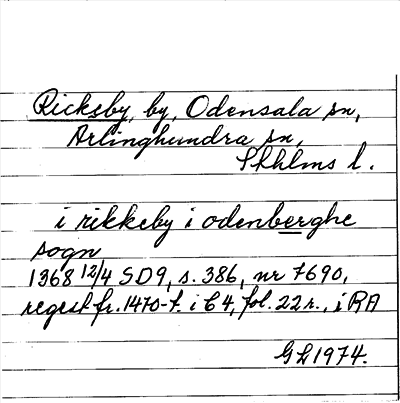 Ricksby, by, Odensala sn,
Arlinghundra sn,
Sthlms l.
i rikkeby i odenberghe
sogn
1368 12/4 SD9, s. 386, nr 7690,
regest fr. 1470-t. i C 4, fol. 22 r., i RA
GL 1974.